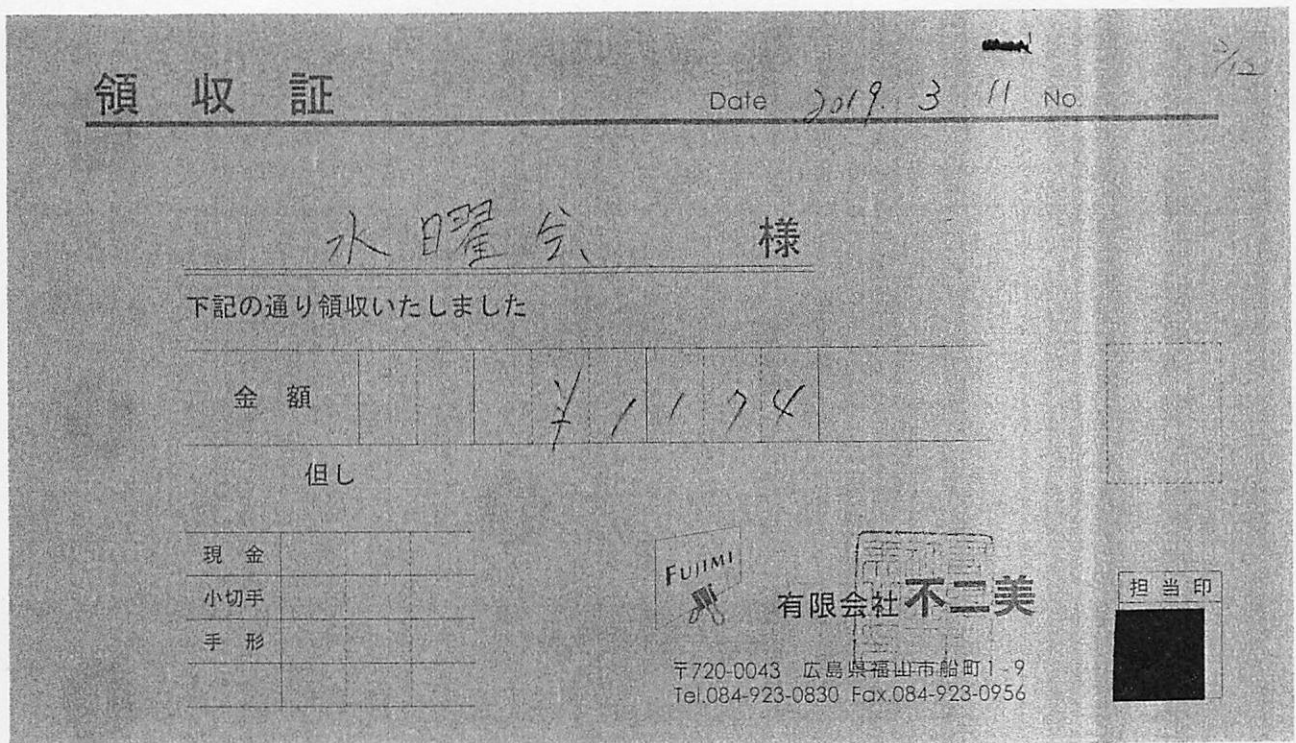 領収証 Date 2019. 3 11 No.
水曜会 様
下記の通り領収いたしました
金額 ¥1174
但し
現金
小切手
手形
FUJIMI
有限会社 不二美
担当印
〒720-0043 広島県福山市船町1-9
Tel.084-923-0830 Fax.084-923-0956